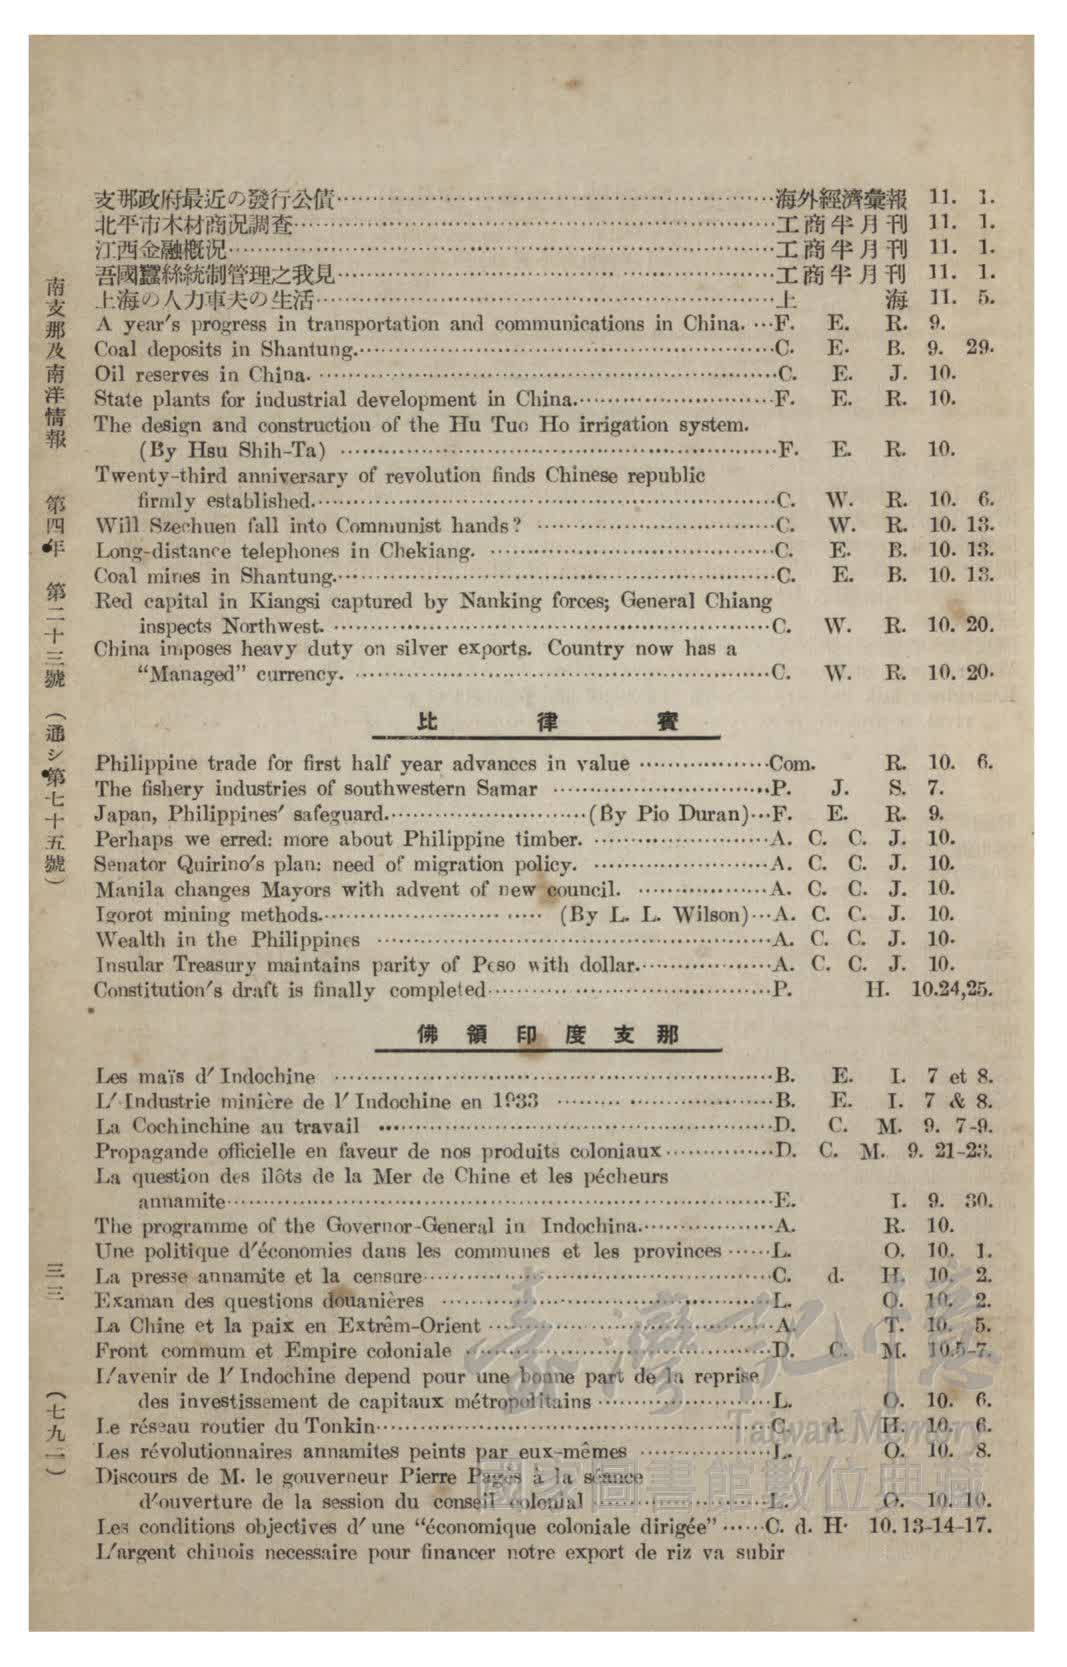 支那政府最近の發行公債……海外經濟彙報 11. 1.
北平市木材商況調査……工商半月刊 11. 1.
江西金融概況……工商半月刊 11. 1.
吾國蠶絲統制管理之我見……工商半月刊 11. 1.
上海の人力車夫の生活……上海 11. 5.
A year's progress in transportation and communications in China. …F. E. R. 9.
Coal deposits in Shantung.……C. E. B. 9. 29.
Oil reserves in China. ……C. E. J. 10.
State plants for industrial development in China.……F. E. R. 10.
The design and construction of the Hu Tuo Ho irrigation system.
(By Hsu Shih-Ta) ……F. E. R. 10.
Twenty-third anniversary of revolution finds Chinese republic
firmly established.……C. W. R. 10. 6.
Will Szechuen fall into Communist hands? ……C. W. R. 10. 13.
Long-distance telephones in Chekiang. ……C. E. B. 10. 13.
Coal mines in Shantung.……C. E. B. 10. 13.
Red capital in Kiangsi captured by Nanking forces; General Chiang
inspects Northwest. ……C. W. R. 10. 20.
China imposes heavy duty on silver exports. Country now has a
“Managed” currency. ……C. W. R. 10. 20.
比律賓
Philippine trade for first half year advances in value ……Com. R. 10. 6.
The fishery industries of southwestern Samar ……P. J. S. 7.
Japan, Philippines' safeguard.……(By Pio Duran)…F. E. R. 9.
Perhaps we erred: more about Philippine timber. ……A. C. C. J. 10.
Senator Quirino's plan: need of migration policy. ……A. C. C. J. 10.
Manila changes Mayors with advent of new council. ……A. C. C. J. 10.
Igorot mining methods.…… (By L. L. Wilson)…A. C. C. J. 10.
Wealth in the Philippines ……A. C. C. J. 10.
Insular Treasury maintains parity of Peso with dollar.……A. C. C. J. 10.
Constitution's draft is finally completed……P. H. 10.24,25.
佛領印度支那
Les maïs d' Indochine ……B. E. I. 7 et 8.
L' Industrie minière de l' Indochine en 1933 ……B. E. I. 7 & 8.
La Cochinchine au travail ……D. C. M. 9. 7-9.
Propagande officielle en faveur de nos produits coloniaux……D. C. M. 9. 21-23.
La question des ilôts de la Mer de Chine et les pécheurs
annamite……E. I. 9. 30.
The programme of the Governor-General in Indochina.……A. R. 10.
Une politique d'économies dans les communes et les provinces……L. O. 10. 1.
La presse annamite et la censure……C. d. H. 10. 2.
Examan des questions douanières ……L. O. 10. 2.
La Chine et la paix en Extrêm-Orient……A. T. 10. 5.
Front commum et Empire coloniale ……D. C. M. 10.5-7.
L'avenir de l' Indochine depend pour une bonne part de la reprise
des investissement de capitaux métropolitains ……L. O. 10. 6.
Le réseau routier du Tonkin……C. d. H. 10. 6.
Les révolutionnaires annamites peints par eux-mêmes ……L. O. 10. 8.
Discours de M. le gouverneur Pierre Pagès à la séance
d'ouverture de la session du conseil colonial ……L. O. 10. 10.
Les conditions objectives d' une “économique coloniale dirigée”……C. d. H. 10. 13-14-17.
L'argent chinois necessaire pour financer notre export de riz va subir
南支那及南洋情報 第四年 第二十三號 (通シ第七十五號)
三三 (七九二)
臺灣記憶
Taiwan Memory
國家圖書館數位典藏